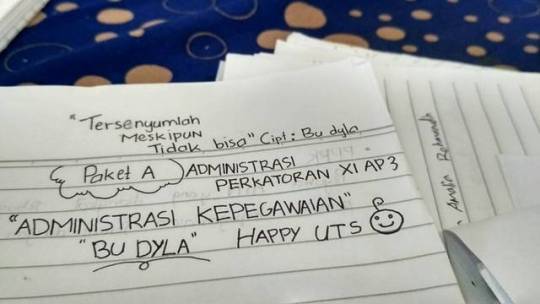 "Tersenyumlah
Meskipun
Tidak bisa" Cipt: Bu dyla
Paket A
ADMINISTRASI
PERKATORAN XI AP 3
"ADMINISTRASI KEPEGAWAIAN"
"BU DYLA" HAPPY UTS